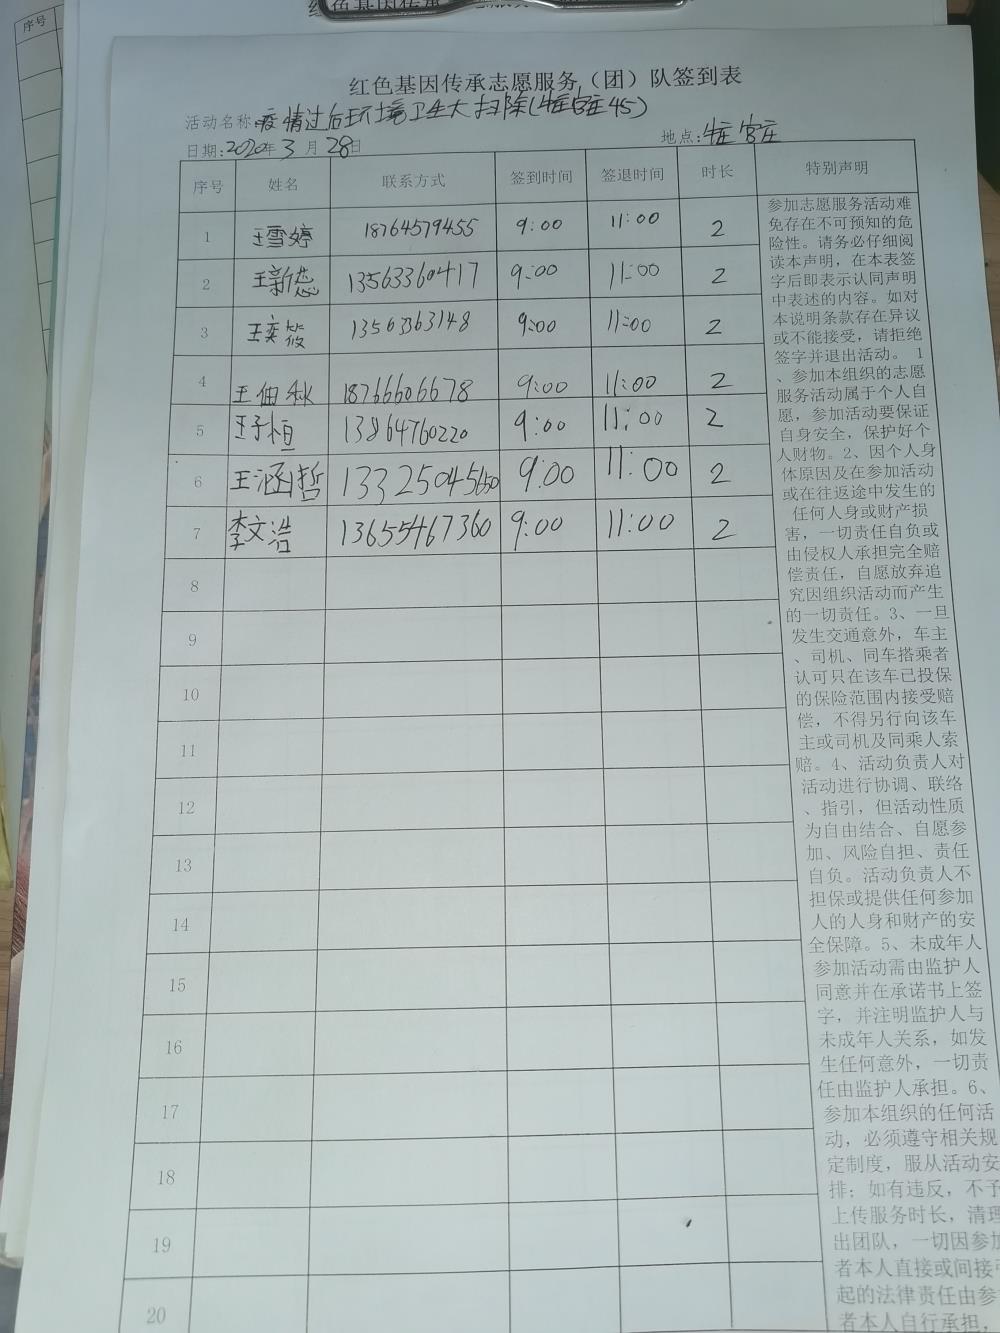 序号
红色基因传承志愿服务（团）队签到表
活动名称:疫情过后环境卫生大扫除(牛家官庄45)
日期:2020年3月28日 地点:官庄
序号 姓名 联系方式 签到时间 签退时间 时长 特别声明
1 王雪婷 18764579455 9:00 11:00 2
2 王新 13563360417 9:00 11:00 2
3 王奕筱 13563363148 9:00 11:00 2
4 王佃秋 18766606678 9:00 11:00 2
5 王子恒 13864760220 9:00 11:00 2
6 王涵哲 9:00 11:00 2
7 李文浩 13655467360 9:00 11:00 2
8
9
10
11
12
13
14
15
16
17
18
19
20
参加志愿服务活动难
免存在不可预知的危
险性。请务必仔细阅
读本声明，在本表签
字后即表示认同声明
中表述的内容。如对
本说明条款存在异议
或不能接受，请拒绝
签字并退出活动。 1
、参加本组织的志愿
服务活动属于个人自
愿，参加活动要保证
自身安全，保护好个
人财物。2、因个人身
体原因及在参加活动
或在往返途中发生的
任何人身或财产损
害，一切责任自负或
由侵权人承担完全赔
偿责任，自愿放弃追
究因组织活动而产生
的一切责任。3、一旦
发生交通意外，车主
、司机、同车搭乘者
认可只在该车已投保
的保险范围内接受赔
偿，不得另行向该车
主或司机及同乘人索
赔。4、活动负责人对
活动进行协调、联络
、指引，但活动性质
为自由结合、自愿参
加、风险自担、责任
自负。活动负责人不
担保或提供任何参加
人的人身和财产的安
全保障。5、未成年人
参加活动需由监护人
同意并在承诺书上签
字，并注明监护人与
未成年人关系，如发
生任何意外，一切责
任由监护人承担。6、
参加本组织的任何活
动，必须遵守相关规
定制度，服从活动安
排；如有违反，不予
上传服务时长，清理
出团队，一切因参加
者本人直接或间接引
起的法律责任由参
者本人自行承担，